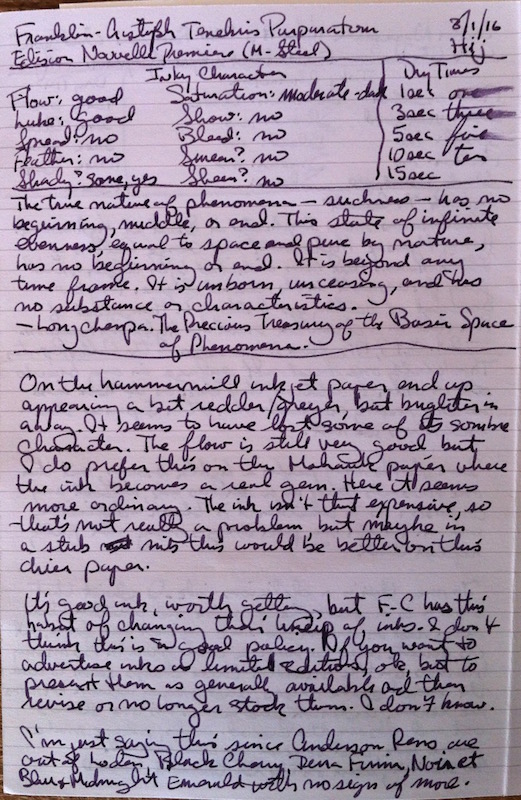 Franklin-Christoph Tenebris Purpuratum 8/1/16
Edison Nouvelle Premiere (M-Steel) Hij
Inky Character Dry Times
Flow: good Saturation: moderate-dark 1sec one
Lube: Good Show: no 3sec three
Spread: no Bleed: no 5sec five
Feather: no Smear? no 10sec ten
Shady? some, yes Sheen? no 15sec
The true nature of phenomena — suchness — has no
beginning, middle, or end. This state of infinite
evenness, equal to space and pure by nature,
has no beginning or end. It is beyond any
time frame. It is unborn, unceasing, and has
no substance or characteristics.
— Longchenpa. The Precious Treasury of the Basic Space
of Phenomena.
On the hammermill inkjet paper end up
appearing a bit redder/greyer, but brighter in
a way. It seems to have lost some of its sombre
character. The flow is still very good but
I do prefer this on the Mohawk paper where
the ink becomes a real gem. Here it seems
more ordinary. The ink isn't that expensive, so
that's not really a problem but maybe in
a stub nib this would be better on this
drier paper.
It's good ink, worth getting, but F-C has this
habit of changing their lineup of inks. I don't
think this is a good policy. If you want to
advertise inks as limited editions, ok but to
present them as generally available and then
revise or no longer stock them. I don't know.
I'm just saying this since Anderson, Reno are
out of Loden, Black Cherry, Terra Firma, Noir et
Bleu & Midnight Emerald with no sign of more.